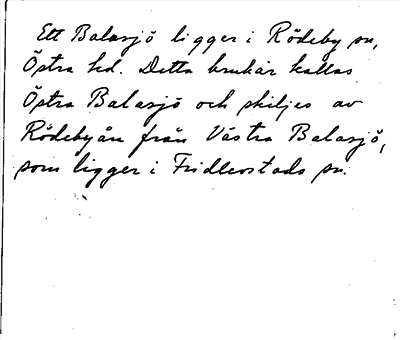 Ett Balasjö ligger i Rödeby sn,
Östra hd. Detta brukar kallas
Östra Balasjö och skiljes av
Rödebyån från Västra Balasjö,
som ligger i Fridlevstads sn.